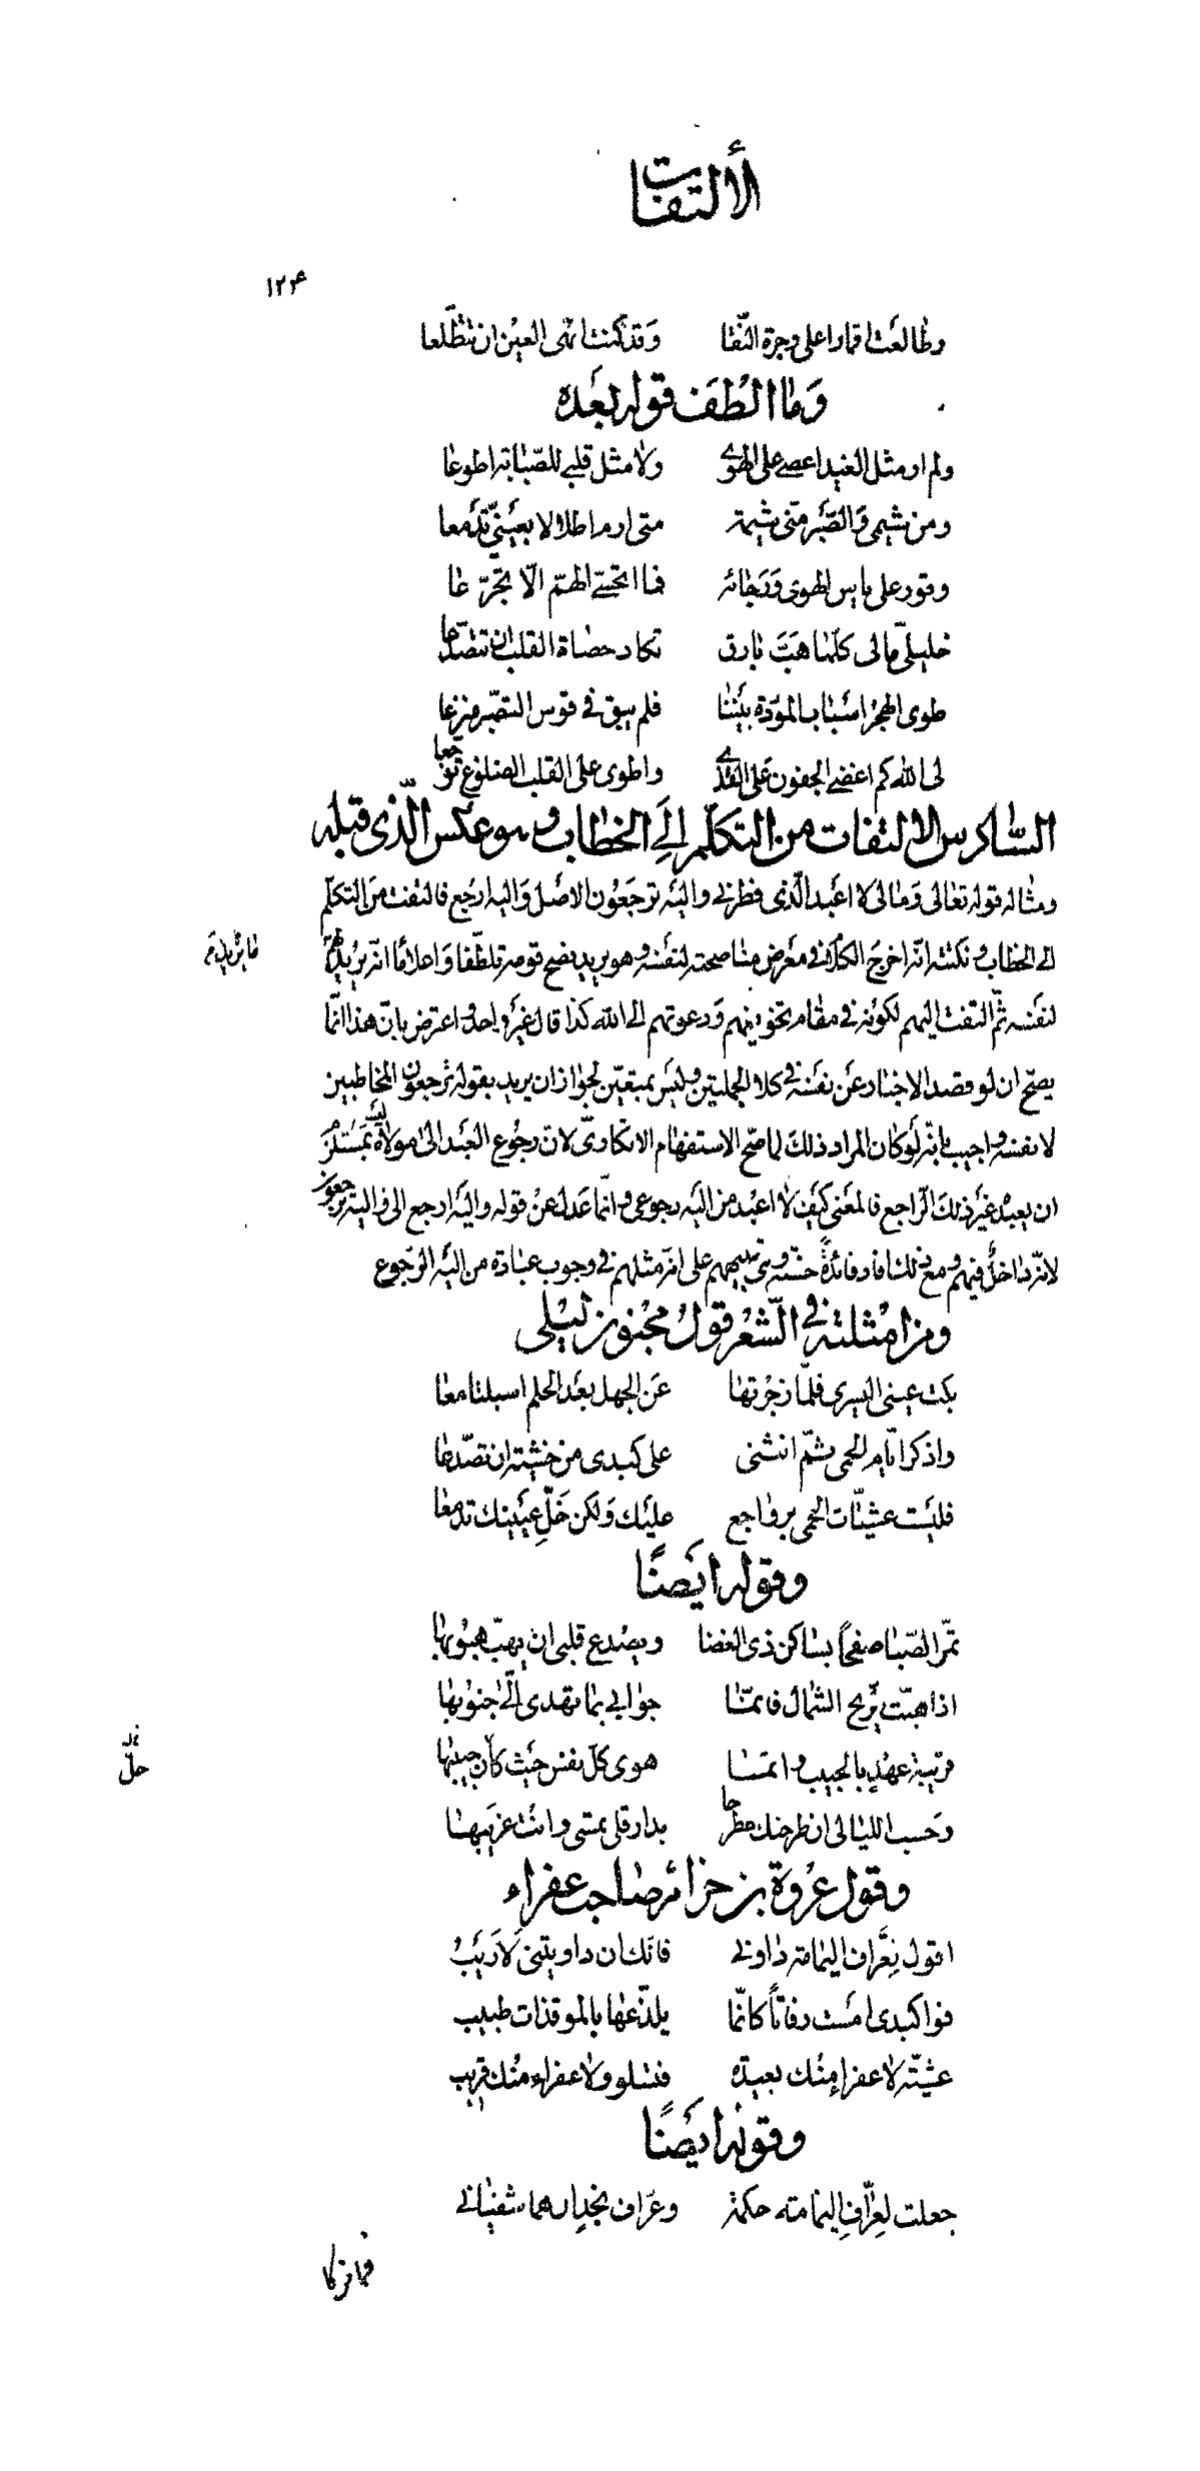 الألتفات
١٢۴
وطالعت اقمارا على وجرة النّقا وَقد كنت انهى العين ان تتطلّعا
وَما الْطَفَ قوله بَعده
ولم ار مثل الغيد اعصى على الهوى ولا مثل قلبي للصّبابة اطوعا
ومن شيمى وَالصّبر منّى شيمة متى ارم اطلالا بعينيّ تدمعا
وقور على ياس الهوى وَرَجائه فما اتحسّى الهمّ الّا تجرّعا
خليليّ مالى كلّما هبّ بارق تكاد حصاة القلب ان تتصدّعا
طوى الهجر اسباب المودّة بيننا فلم يبق في قوس التصبّر منزعا
لى الله كم اغضى الجفون على القذى واطوى على القلب الضلوع توجّعا
السّادس الالتفات من التكلّم الى الخطاب وهو عكس الّذى قبله
ومثاله قوله تعالى وَمالى لا اعبد الّذى فطرنى واليه ترجعون الاصل وَاليه ارجع فالتفت من التكلّم
الى الخطاب ونكتته انّه اخرج الكلام في معرض مناصحته لنفسه وهو يريد نصح قومه تلطّفا وَاعلاما انّه يريد لهم
ما يريده
لنفسه ثمّ التفت اليهم لكونه في مقام تخويفهم وَدعوتهم الى الله كذا قال غير واحد واعترض بانّ هذا انّما
يصحّ ان لو قصد الاخبار عن نفسه في كلا الجملتين وليس بمتعيّن لجواز ان يريد بقوله ترجعون المخاطبين
لا نفسه واجيب بانّه لو كان المراد ذلك لما صحّ الاستفهام الانكارىّ لان رجوع العبد الى مولاه ليس بمستلزم
ان يعبده غير ذلك الرّاجع فالمعنى كيف لا اعبد من اليه رجوعى وانّما عدل عن قوله واليه ارجع الى واليه ترجعون
لانّه داخل فيهم ومع ذلك افاد فائدة حسنة وهى تنبيههم على انّه مثلهم في وجوب عبادة من اليه الرّجوع
ومن امثلته في الشّعر قول مجنون ليلى
بكت عينى اليسرى فلمّا زجرتها عن الجهل بعد الحلم اسبلتا معا
واذكر ايّام الحمى ثمّ انثنى على كبدى من خشية ان تصدّعا
فليست عشيّات الحمى برواجع عليك وَلكن خلّ عينيك تدمعا
وقوله ايضًا
تمرّ الصّبا صفحاً بساكن ذى الغضا ويصدع قلبى ان يهبّ هبوبها
اذا هبّت ريح الشمال فانّما جوابي بما تهدى الىّ جنوبها
قريبة عهد بالحبيب وانّما هوى كلّ نفس حيث كان حبيبها
حلّ
وَحسب الليالى ان طرحنك مطرحا بدار قلى تمسى وانت غريبها
وقول عُروة بن حزام صاحب عفراء
اقول لعرّاف اليمامة داونى فانّك ان داويتنى لاريبُ
فوا كبدى امست رفاتاً كانّما يلذّعها بالموقذات طبيب
عشيّة لا عفراء منك بعيدة فتسلو ولا عفراء منك قريب
وقوله ايضًا
جعلت لعرّاف اليمامة حكمة وعرّاف نجد ان هما شفيانى
فما تركا